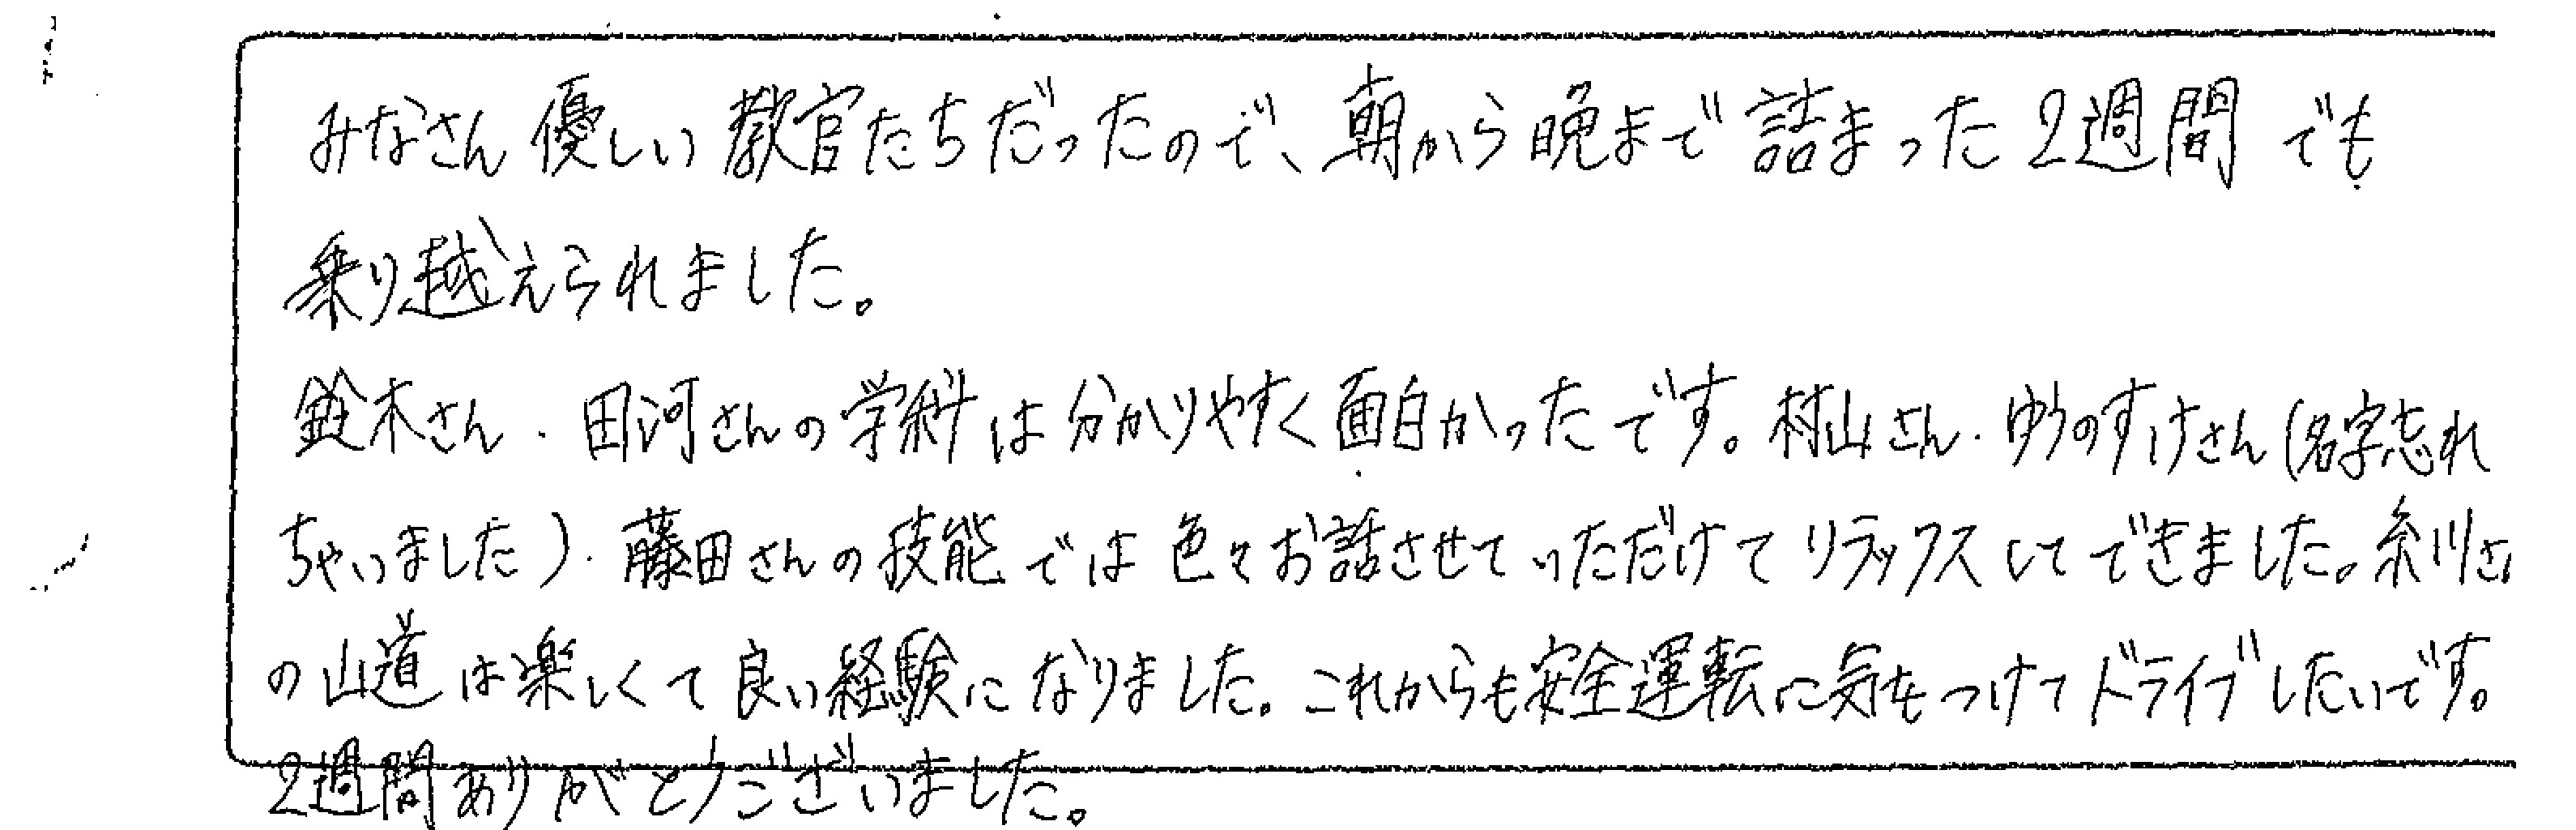 みなさん優しい教官たちだったので、朝から晩まで詰まった2週間でも
乗り越えられました。
鈴木さん・田河さんの学科は分かりやすく面白かったです。村山さん・ゆうのすけさん(名字忘れ
ちゃいました)・藤田さんの技能では色々お話させていただけてリラックスしてできました。糸川さ
の山道は楽しくて良い経験になりました。これからも安全運転に気をつけてドライブしたいです。
2週間ありがとうございました。